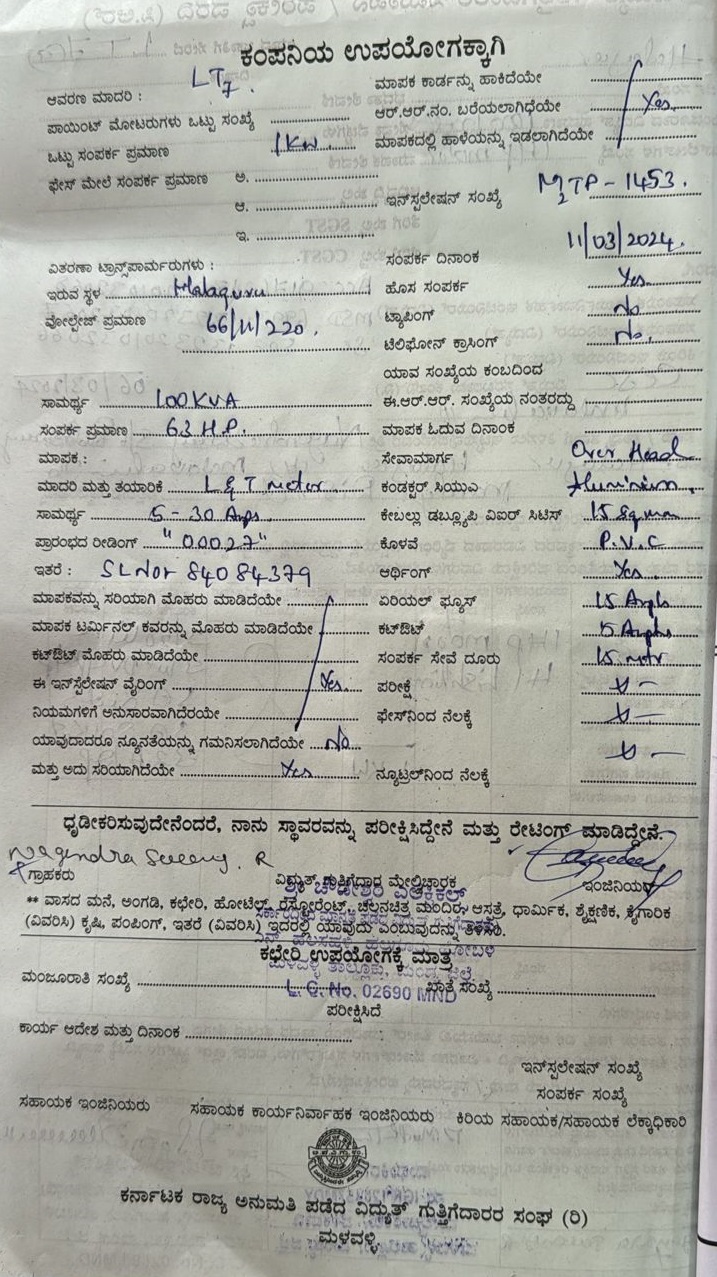 ಕಂಪನಿಯ ಉಪಯೋಗಕ್ಕಾಗಿ
ಆವರಣ ಮಾದರಿ : LT7.
ಪಾಯಿಂಟ್ ಮೋಟರುಗಳು ಒಟ್ಟು ಸಂಖ್ಯೆ
ಒಟ್ಟು ಸಂಪರ್ಕ ಪ್ರಮಾಣ 1KW
ಫೇಸ್ ಮೇಲೆ ಸಂಪರ್ಕ ಪ್ರಮಾಣ ಅ.
ಆ.
ಇ.
ವಿತರಣಾ ಟ್ರಾನ್ಸ್‌ಪಾರ್ಮರುಗಳು :
ಇರುವ ಸ್ಥಳ Malaguru
ವೋಲ್ಟೇಜ್ ಪ್ರಮಾಣ 66/11/220.
ಸಾಮರ್ಥ್ಯ 100KVA
ಸಂಪರ್ಕ ಪ್ರಮಾಣ 63 H.P.
ಮಾಪಕ :
ಮಾದರಿ ಮತ್ತು ತಯಾರಿಕೆ L&T meter
ಸಾಮರ್ಥ್ಯ 5-30 Amps.
ಪ್ರಾರಂಭದ ರೀಡಿಂಗ್ "00027"
ಇತರೆ : SLNo: 84084379
ಮಾಪಕವನ್ನು ಸರಿಯಾಗಿ ಮೊಹರು ಮಾಡಿದೆಯೇ
ಮಾಪಕ ಟರ್ಮಿನಲ್ ಕವರನ್ನು ಮೊಹರು ಮಾಡಿದೆಯೇ
ಕಟ್‌ಔಟ್ ಮೊಹರು ಮಾಡಿದೆಯೇ
ಈ ಇನ್‌ಸ್ಟಲೇಷನ್ ವೈರಿಂಗ್ Yes.
ನಿಯಮಗಳಿಗೆ ಅನುಸಾರವಾಗಿದೆರಯೇ
ಯಾವುದಾದರೂ ನ್ಯೂನತೆಯನ್ನು ಗಮನಿಸಲಾಗಿದೆಯೇ No
ಮತ್ತು ಅದು ಸರಿಯಾಗಿದೆಯೇ Yes
ಮಾಪಕ ಕಾರ್ಡನ್ನು ಹಾಕಿದೆಯೇ
ಆರ್.ಆರ್.ನಂ. ಬರೆಯಲಾಗಿಧೆಯೇ Yes.
ಮಾಪಕದಲ್ಲಿ ಹಾಳೆಯನ್ನು ಇಡಲಾಗಿದೆಯೇ
ಇನ್‌ಸ್ಪಲೇಷನ್ ಸಂಖ್ಯೆ M2TP-1453.
ಸಂಪರ್ಕ ದಿನಾಂಕ 11/03/2024.
ಹೊಸ ಸಂಪರ್ಕ Yes.
ಟ್ಯಾಪಿಂಗ್ No
ಟೆಲಿಫೋನ್ ಕ್ರಾಸಿಂಗ್ No.
ಯಾವ ಸಂಖ್ಯೆಯ ಕಂಬದಿಂದ
ಈ.ಆರ್.ಆರ್. ಸಂಖ್ಯೆಯ ನಂತರದ್ದು
ಮಾಪಕ ಓದುವ ದಿನಾಂಕ
ಸೇವಾಮಾರ್ಗ Over Head
ಕಂಡಕ್ಟರ್ ಸಿಯುಎ Aluminium.
ಕೇಬಲ್ಲು ಡಬ್ಲ್ಯೂಪಿ ವಿಐರ್ ಸಿಟಿಸ್ 15 Sqmm
ಕೊಳವೆ P.V.C
ಆರ್ಥಿಂಗ್ Yes.
ಏರಿಯಲ್ ಫ್ಯೂಸ್ 15 Amps
ಕಟ್‌ಔಟ್ 15 Amps
ಸಂಪರ್ಕ ಸೇವೆ ದೂರು 15 metr
ಪರೀಕ್ಷೆ
ಫೇಸ್‌ನಿಂದ ನೆಲಕ್ಕೆ
ನ್ಯೂಟ್ರಲ್‌ನಿಂದ ನೆಲಕ್ಕೆ
ಧೃಡೀಕರಿಸುವುದೇನೆಂದರೆ, ನಾನು ಸ್ಥಾವರವನ್ನು ಪರೀಕ್ಷಿಸಿದ್ದೇನೆ ಮತ್ತು ರೇಟಿಂಗ್ ಮಾಡಿದ್ದೇನೆ.
Nagendra Swamy. R
ಗ್ರಾಹಕರು ವಿದ್ಯುತ್ ಗುತ್ತಿಗೆದಾರ ಮೇಲ್ವಿಚಾರಕ ಇಂಜಿನಿಯರ್
** ವಾಸದ ಮನೆ, ಅಂಗಡಿ, ಕಛೇರಿ, ಹೋಟೆಲ್, ರೆಸ್ಟೋರೆಂಟ್, ಚಲನಚಿತ್ರ ಮಂದಿರ, ಆಸ್ಪತ್ರೆ, ಧಾರ್ಮಿಕ, ಶೈಕ್ಷಣಿಕ, ಕೈಗಾರಿಕ
(ವಿವರಿಸಿ) ಕೃಷಿ, ಪಂಪಿಂಗ್, ಇತರೆ (ವಿವರಿಸಿ) ಇದರಲ್ಲಿ ಯಾವುದು ಎಂಬುವುದನ್ನು ತಿಳಿಸಿರಿ.
ಕಛೇರಿ ಉಪಯೋಗಕ್ಕೆ ಮಾತ್ರ
ಮಂಜೂರಾತಿ ಸಂಖ್ಯೆ ಖಾತೆ ಸಂಖ್ಯೆ
L.C.No. 02690 MND
ಪರೀಕ್ಷಿಸಿದೆ
ಕಾರ್ಯ ಆದೇಶ ಮತ್ತು ದಿನಾಂಕ
ಇನ್‌ಸ್ಪಲೇಷನ್ ಸಂಖ್ಯೆ
ಸಂಪರ್ಕ ಸಂಖ್ಯೆ
ಸಹಾಯಕ ಇಂಜಿನಿಯರು ಸಹಾಯಕ ಕಾರ್ಯನಿರ್ವಾಹಕ ಇಂಜಿನಿಯರು ಕಿರಿಯ ಸಹಾಯಕ/ಸಹಾಯಕ ಲೆಕ್ಕಾಧಿಕಾರಿ
ಕರ್ನಾಟಕ ರಾಜ್ಯ ಅನುಮತಿ ಪಡೆದ ವಿದ್ಯುತ್ ಗುತ್ತಿಗೆದಾರರ ಸಂಘ (ರಿ)
ಮಳವಳ್ಳಿ.